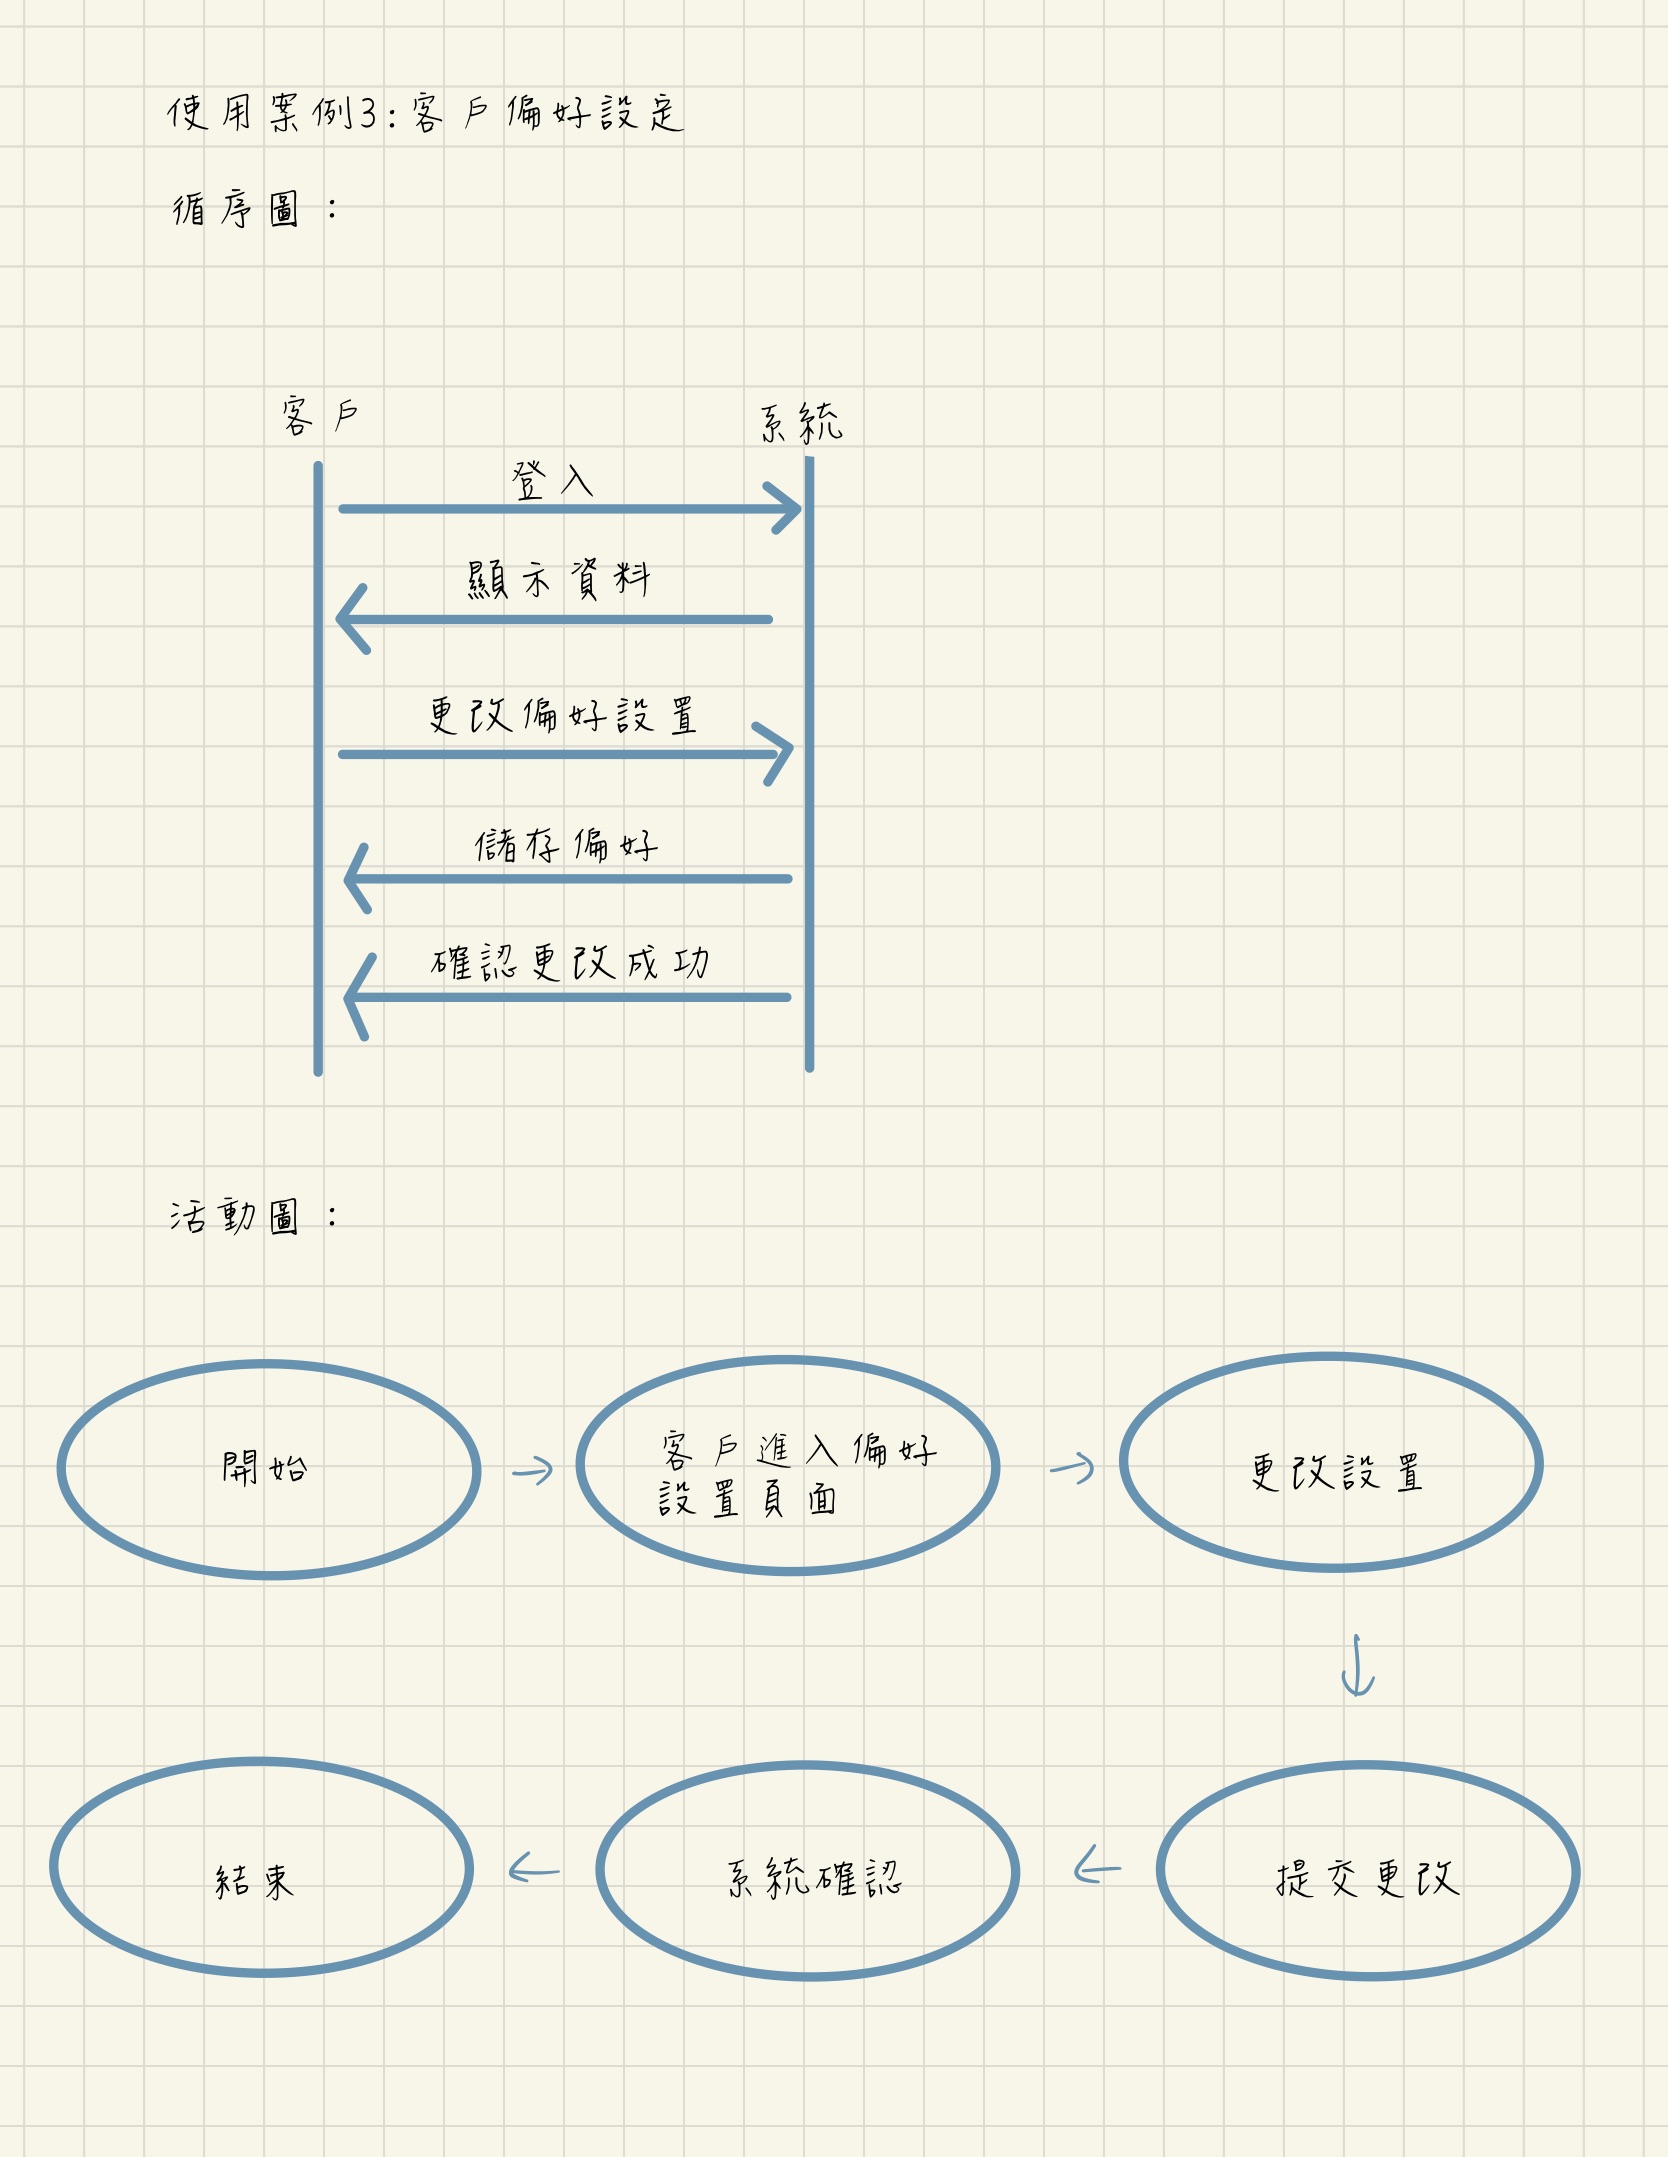 使用案例3:客戶偏好設定
循序圖：
客戶
系統
登入
顯示資料
更改偏好設置
儲存偏好
確認更改成功
活動圖：
開始
客戶進入偏好
設置頁面
更改設置
結束
系統確認
提交更改